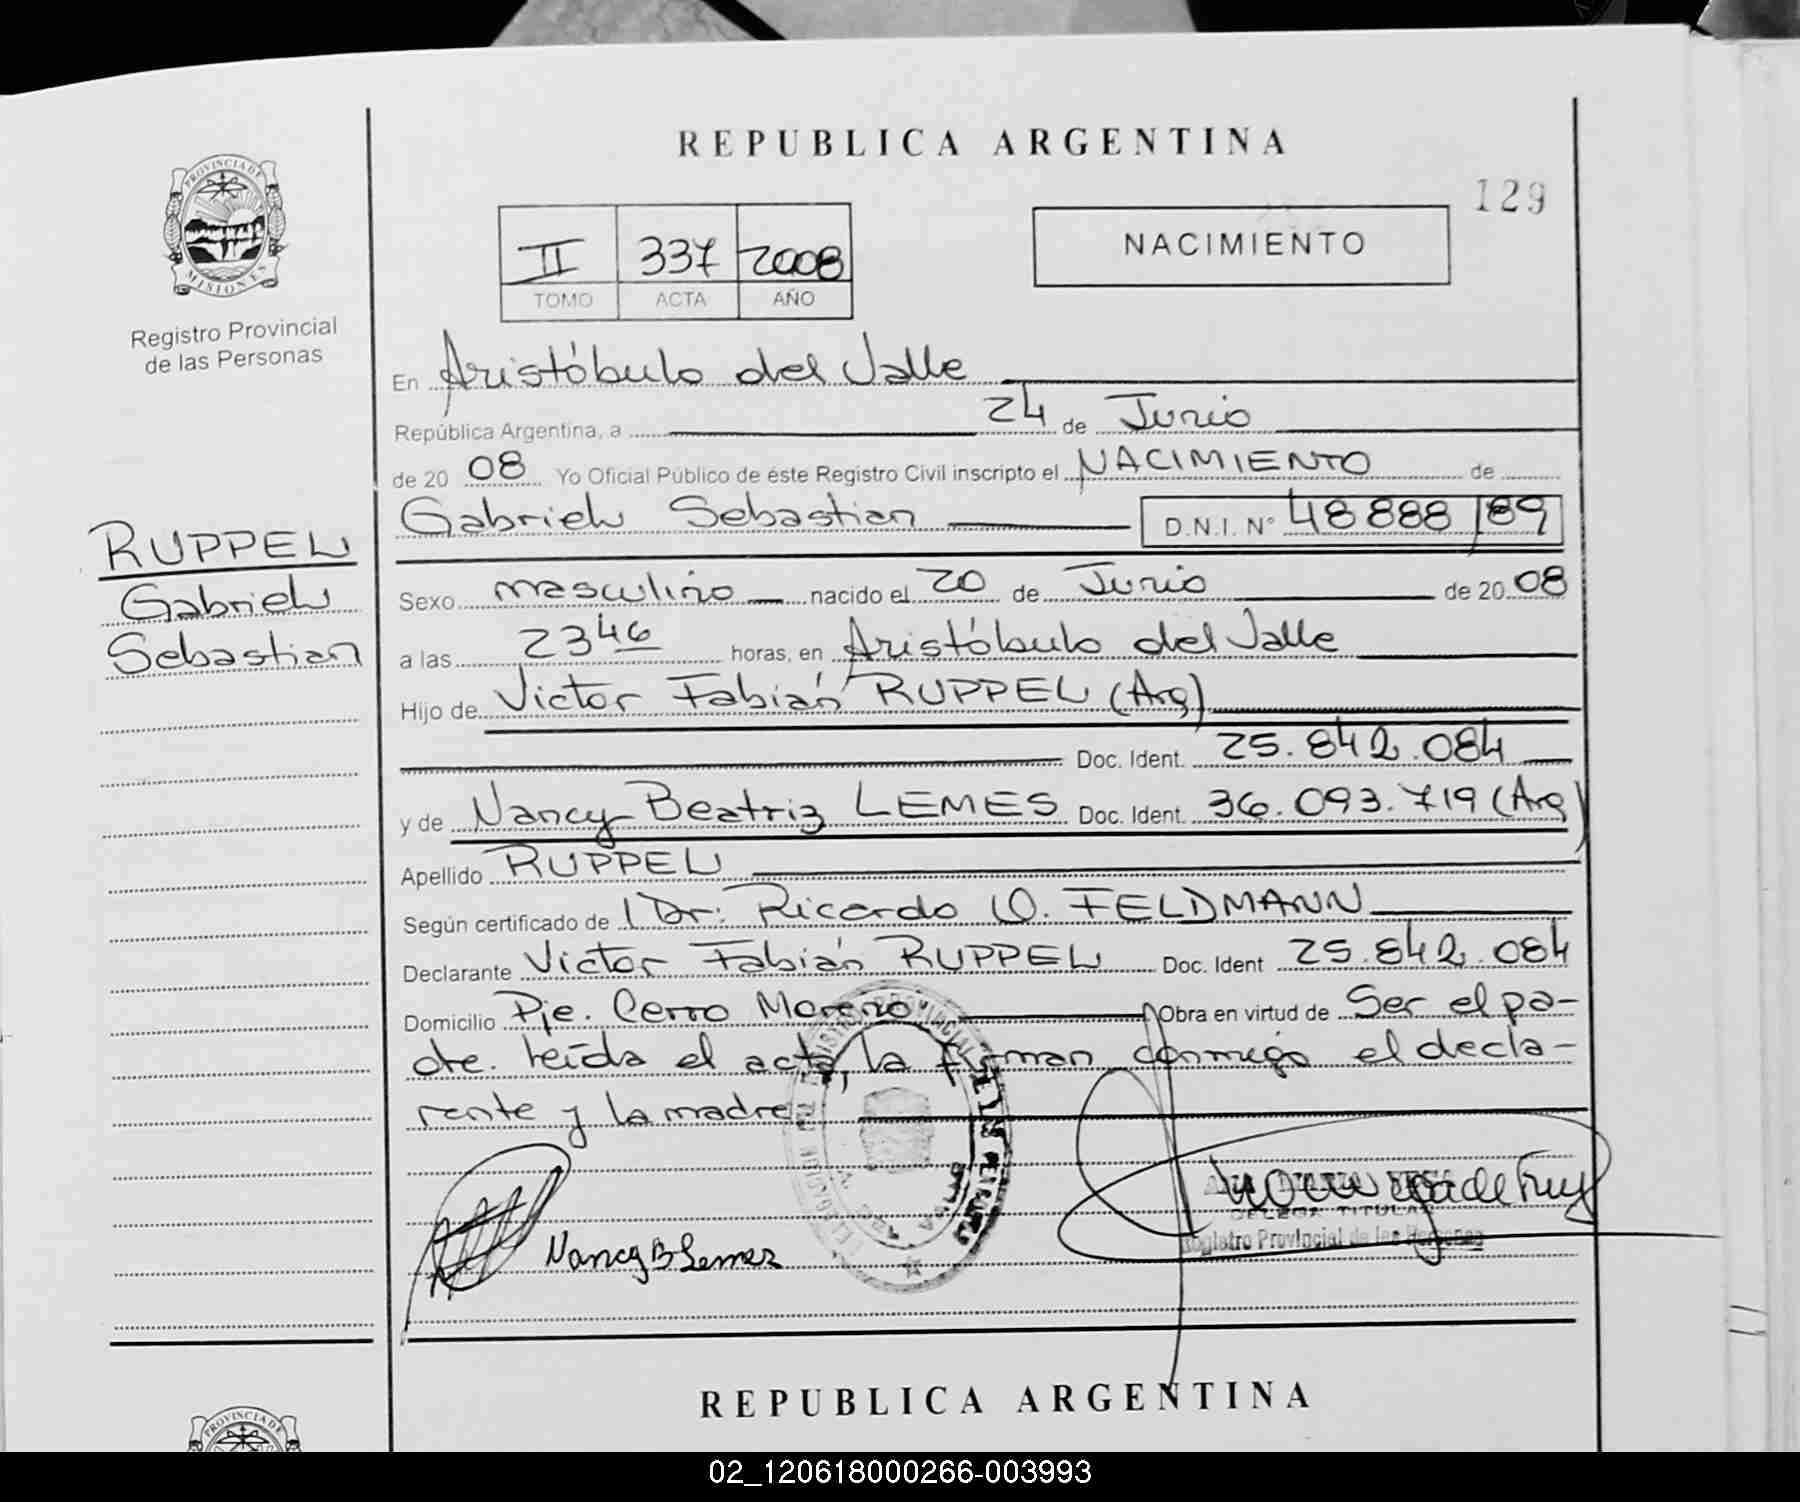 REPUBLICA ARGENTINA
129
PROVINCIA DE
MISIONES
Registro Provincial
de las Personas
II 337 2008
TOMO ACTA AÑO
NACIMIENTO
En Aristóbulo del Valle
República Argentina, a 24 de Junio
de 20 08 Yo Oficial Público de éste Registro Civil inscripto el NACIMIENTO de
Gabriel Sebastian D.N.I. N° 48888189
RUPPEL
Gabriel
Sebastian
Sexo masculino nacido el 20 de Junio de 20 08
a las 23 46 horas, en Aristóbulo del Valle
Hijo de Victor Fabián RUPPEL (Arg)
Doc. Ident. 25.842.084
y de Nancy Beatriz LEMES Doc. Ident. 36.093.719 (Arg)
Apellido RUPPEL
Según certificado de Dr. Ricardo O. FELDMANN
Declarante Victor Fabián RUPPEL Doc. Ident 25.842.084
Domicilio Pje. Cerro Moreno Obra en virtud de Ser el pa-
dre. Leída el acta, la firman conmigo el decla-
rante y la madre
Nancy B Lemes
TITULAR
Registro Provincial de las Personas
REPUBLICA ARGENTINA
PROVINCIA DE
02_120618000266-003993